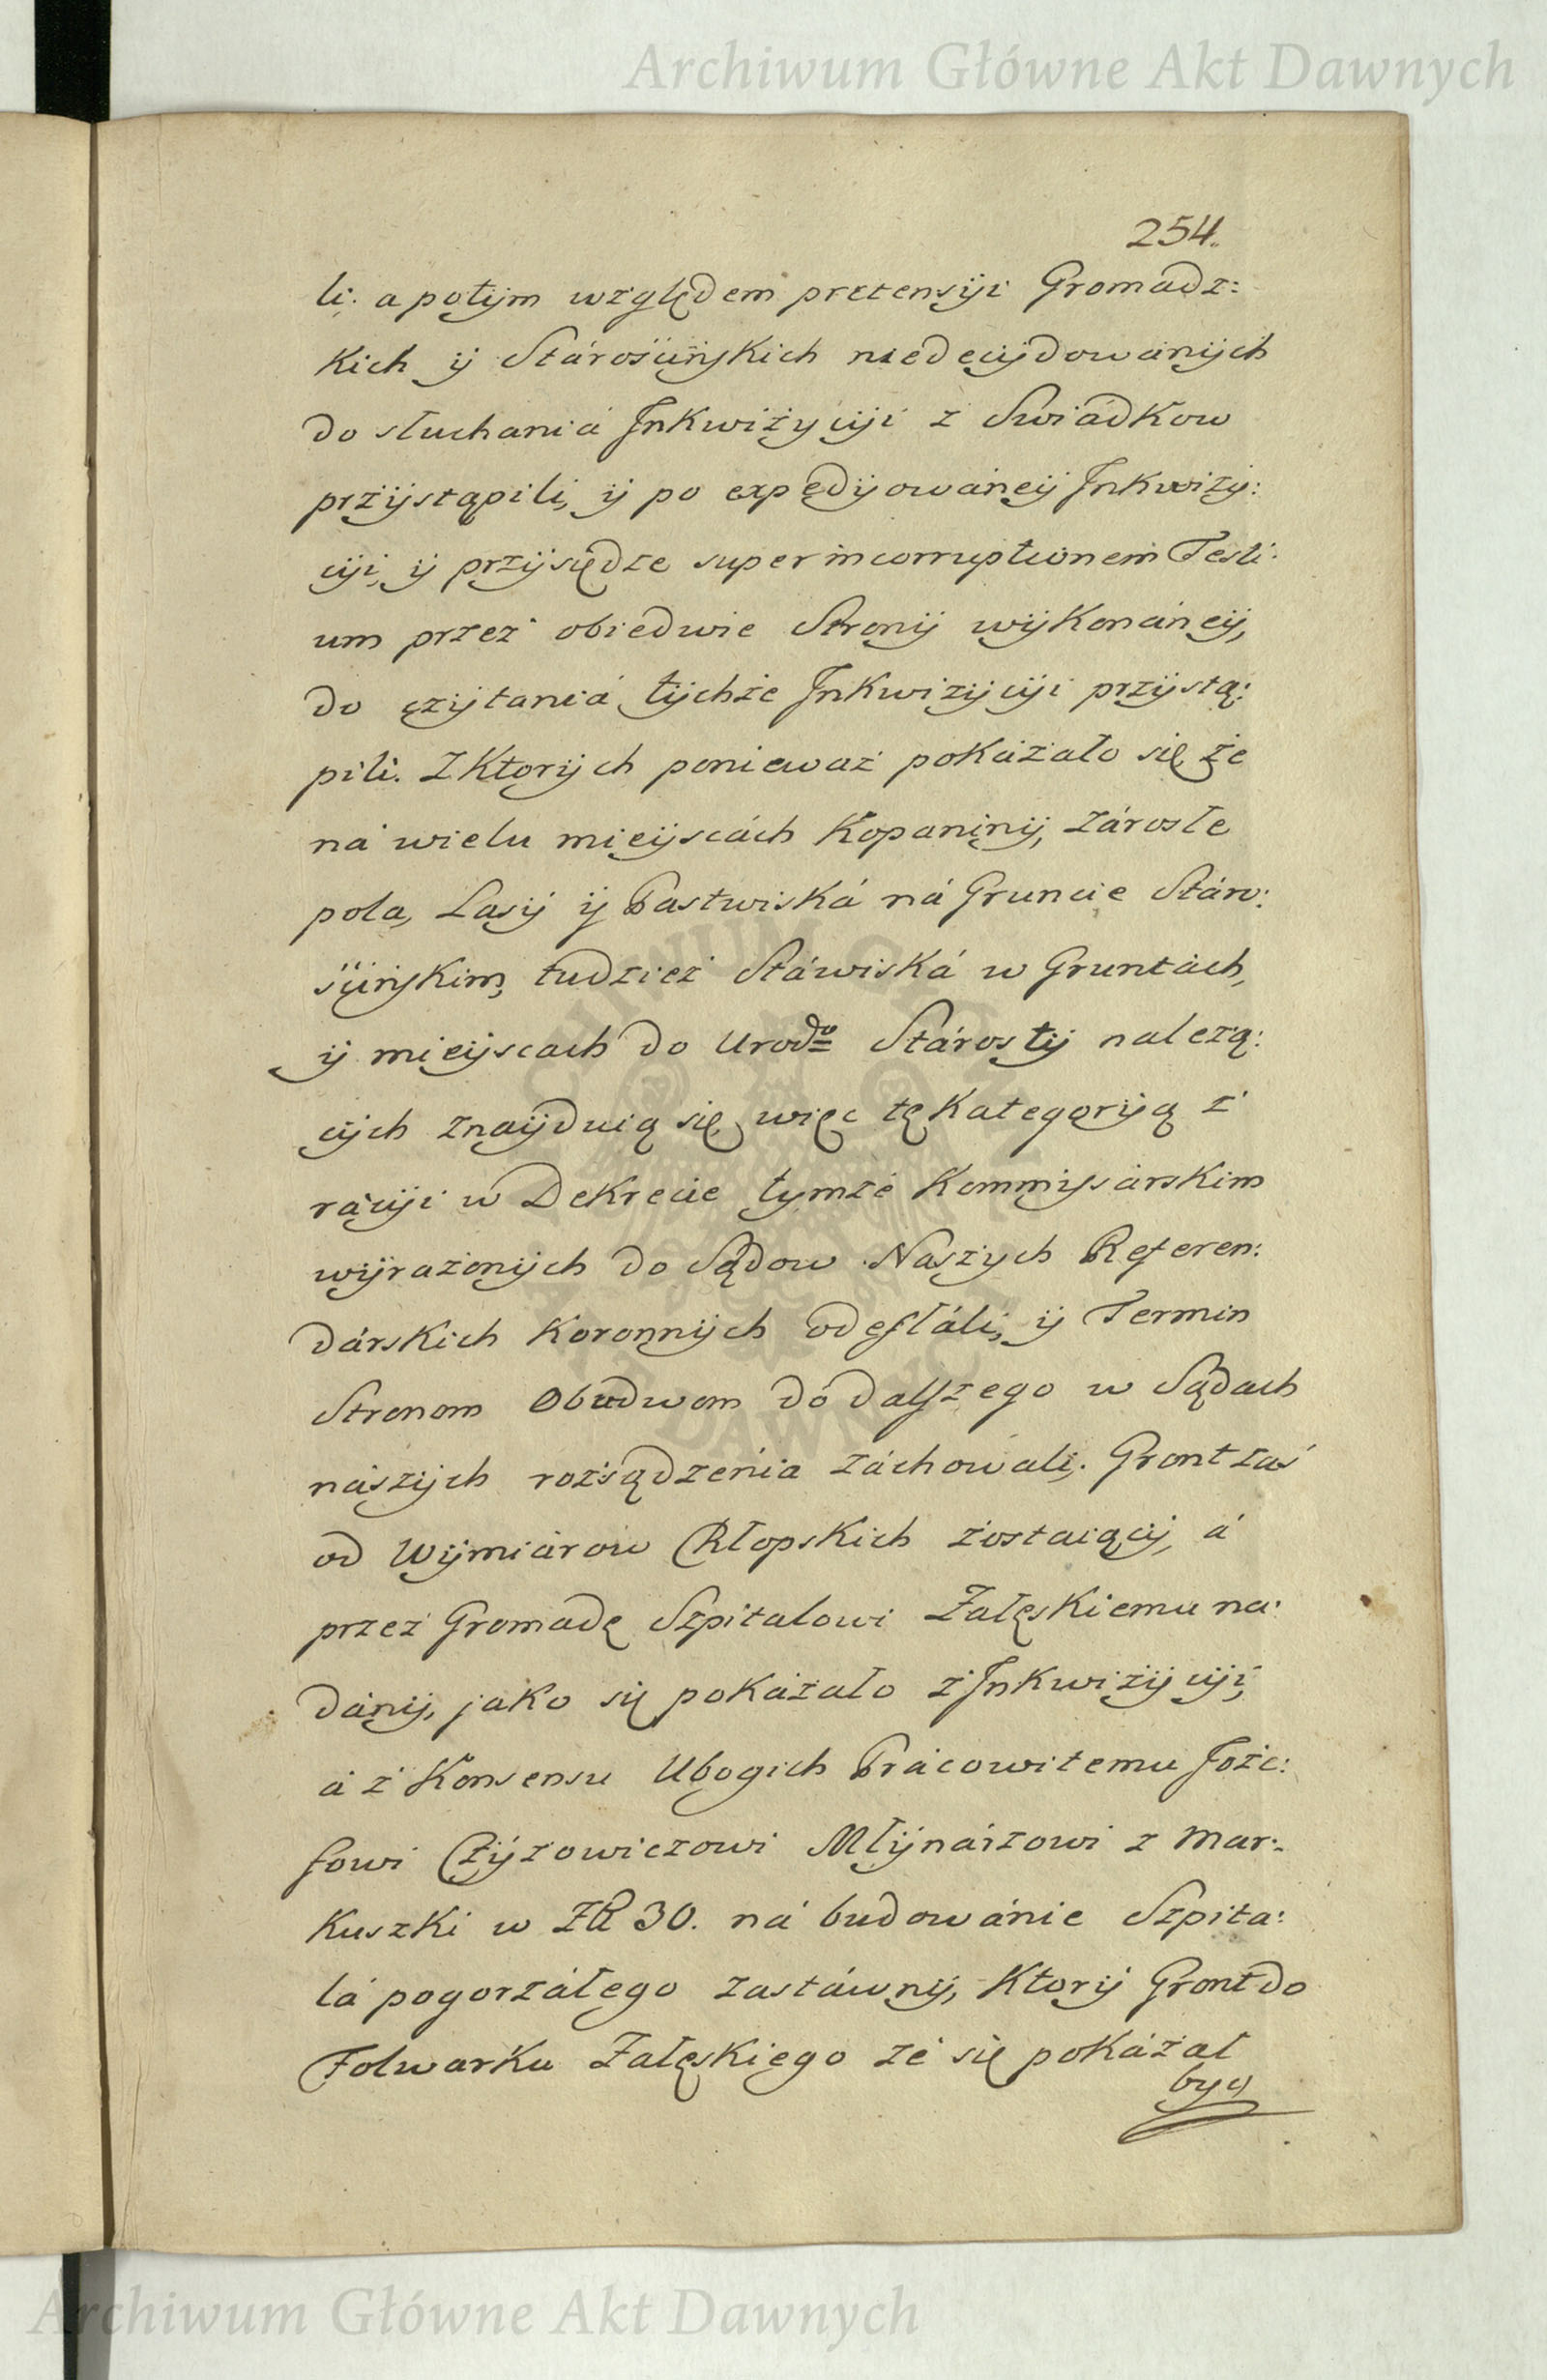 Archiwum Główne Akt Dawnych
254.
li. a potÿm względem pretensÿi Gromadz:
kich ÿ Stárościńskich niedecÿdowanÿch
do słuchania Jnkwizycÿi z Swiádkow
przÿstąpili, ÿ po expedÿowáneÿ Jnkwizÿ:
cÿi, ÿ przÿsiędze super incorruptionem Testi:
um przez obiedwie Stronÿ wÿkonáneÿ,
do czÿtaniá tÿchże Jnkwizÿcÿi przÿstą:
pili. Z Ktorÿch ponieważ pokázało się że
ná wielu mieÿscách Kopaninÿ, zárosłe
pola, Lasÿ ÿ Pastwiská ná Gruncie Stáro:
ścińskim, tudzież Stáwiská w Gruntách,
ÿ mieÿscach do Urodgo Stárostÿ należą:
cÿch znaÿduią się, więc tę kategorÿą z
rácÿi w Dekrecie tymże Kommissárskim
wÿrażonÿch do Sądow Naszych Referen:
dárskich Koronnÿch odesłáli, ÿ Termin
Stronom Obudwom do dalszego w Sądach
nászÿch rozsądzenia záchowáli. Gront zaś
od Wÿmiárow Chłopskich zostaiącÿ, á
przez Gromadę Szpitalowi Załęskiemu na:
dánÿ, jako się pokázało z Jnkwizÿcÿi,
á z Konsensu Ubogich Prácowitemu Joze:
fowi Czÿżowiczowi Młÿnárzowi z Mar:
kuszki w Zł 30. ná budowánie Szpita:
lá pogorzáłego zastáwnÿ, Ktorÿ Gront do
Folwarku Załęskiego że się pokázał
byc
ARCHIWUM GŁÓWNE AKT DAWNYCH
Archiwum Główne Akt Dawnych